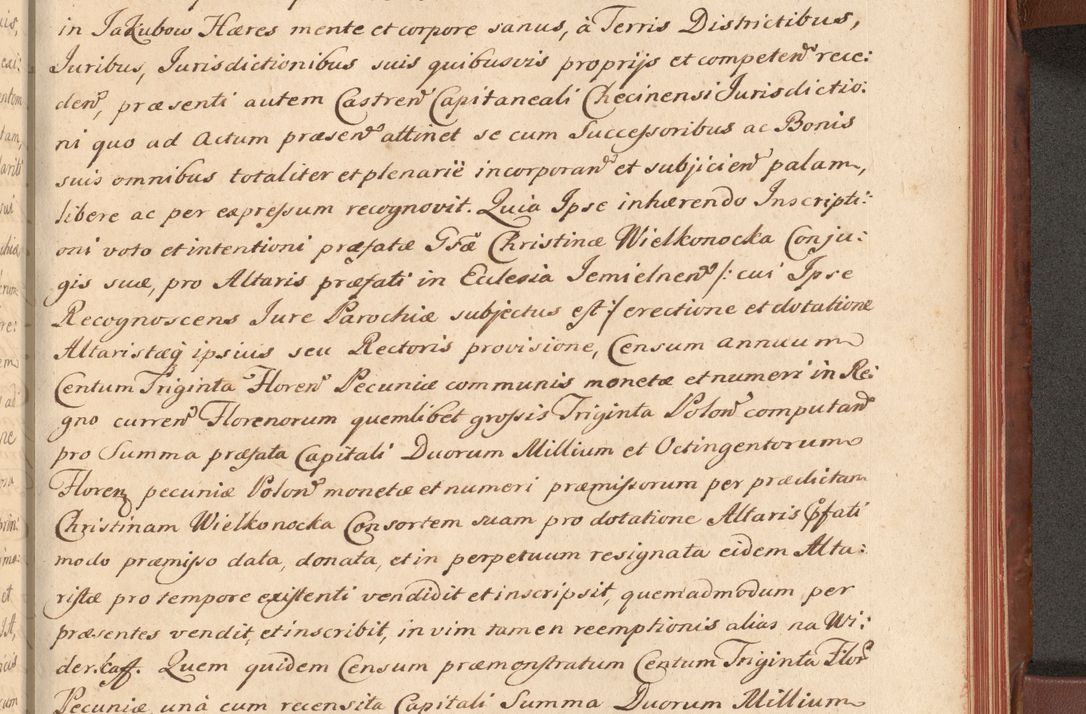 in Jakubow Hæres mente et corpore sanus, à Terris Districtibus,
Juribus, Jurisdictionibus suis quibusvis proprijs et competen rece:
den, præsenti autem Castren Capitaneali Checinensi Jurisdictio:
ni quo ad Actum præsen attinet se cum Successoribus ac Bonis
suis omnibus totaliter et plenariè incorporan et subjicien palam,
libere ac per expressum recognovit. Quia Ipse inhærendo Inscripti:
oni voto et intentioni præfatæ Gsæ Christinæ Wielkonocka Conju:
gis suæ, pro Altaris præfati in Ecclesia Jemielnen /: cui Ipse
Recognoscens Jure Parochiæ subjectus est :/ erectione et dotatione
Altaristæq ipsius seu Rectoris provisione, Censum annuum
Centum Triginta Floren Pecuniæ communis monetæ et numeri in Re:
gno curren Florenorum quemlibet grossis Triginta Polon computan
pro Summa præfata Capitali Duorum Millium et Octingentorum
Floren pecuniæ Polon monetæ et numeri præmissorum per prædictam
Christinam Wielkonocka Consortem suam pro dotatione Altaris pfati
modo præmisso data, donata, et in perpetuum resignata eidem Alta:
ristæ pro tempore existenti vendidit et inscripsit, quemadmodum per
præsentes vendit, et inscribit, in vim tamen reemptionis alias na Wi:
derkaff. Quem quidem Censum præmonstratum Centum Triginta Flor
Pecuniæ unà cum recensita Capitali Summa Duorum Millium